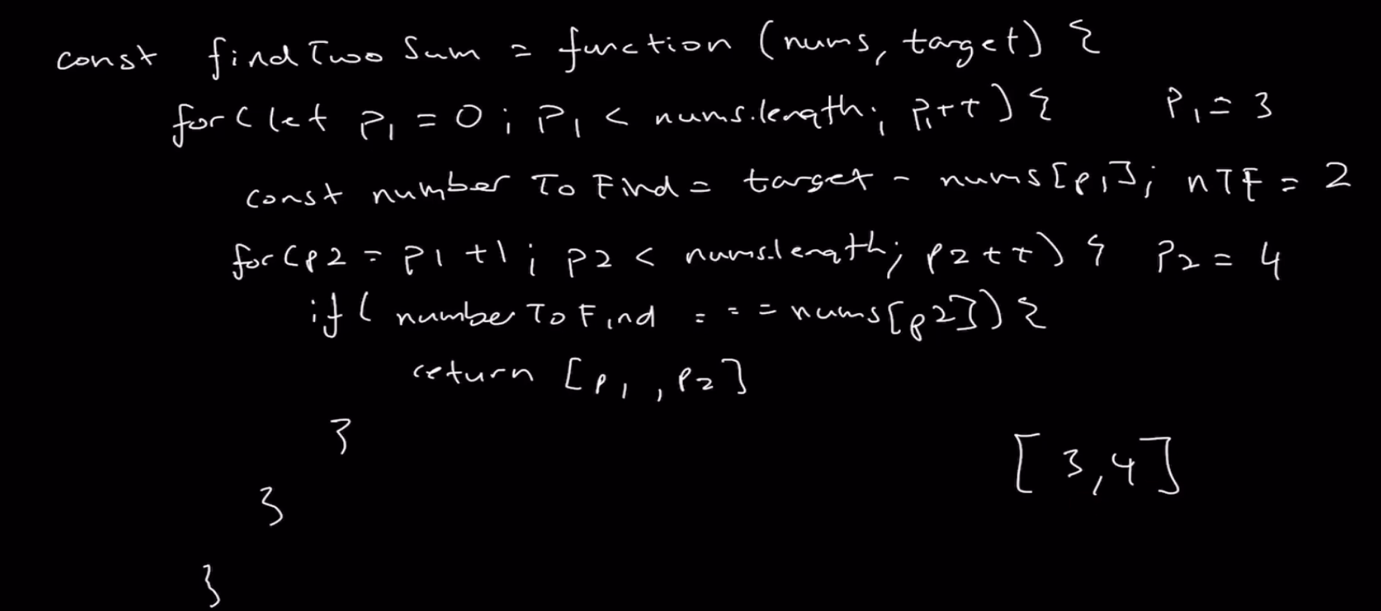 const findTwoSum = function (nums, target) {
for(let p1 = 0; p1 < nums.length; p1++) { P1 = 3
const numberToFind = target - nums[p1]; nTF = 2
for(p2 = p1+1; p2 < nums.length; p2++) { P2 = 4
if( numberToFind === nums[p2]) {
return [p1, p2]
}
[3,4]
}
}